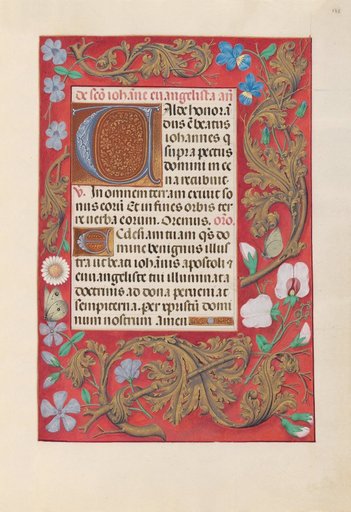 de sco iohane euangelista an
Valde honora
dus e beatus
iohannes q
supra pectus
domini in ce
na recubuit
V. In omnem terram exiuit so
nus eorū Et in fines orbis ter
re uerba eorum. Oremus. oro.
Ecclesiam tuam qs do
mine benignus illus
tra ut beati iohannis apostoli et
euangeliste tui illuminata
doctrinis ad dona perueniat
sempiterna. per xpristū domi
num nostrum amen